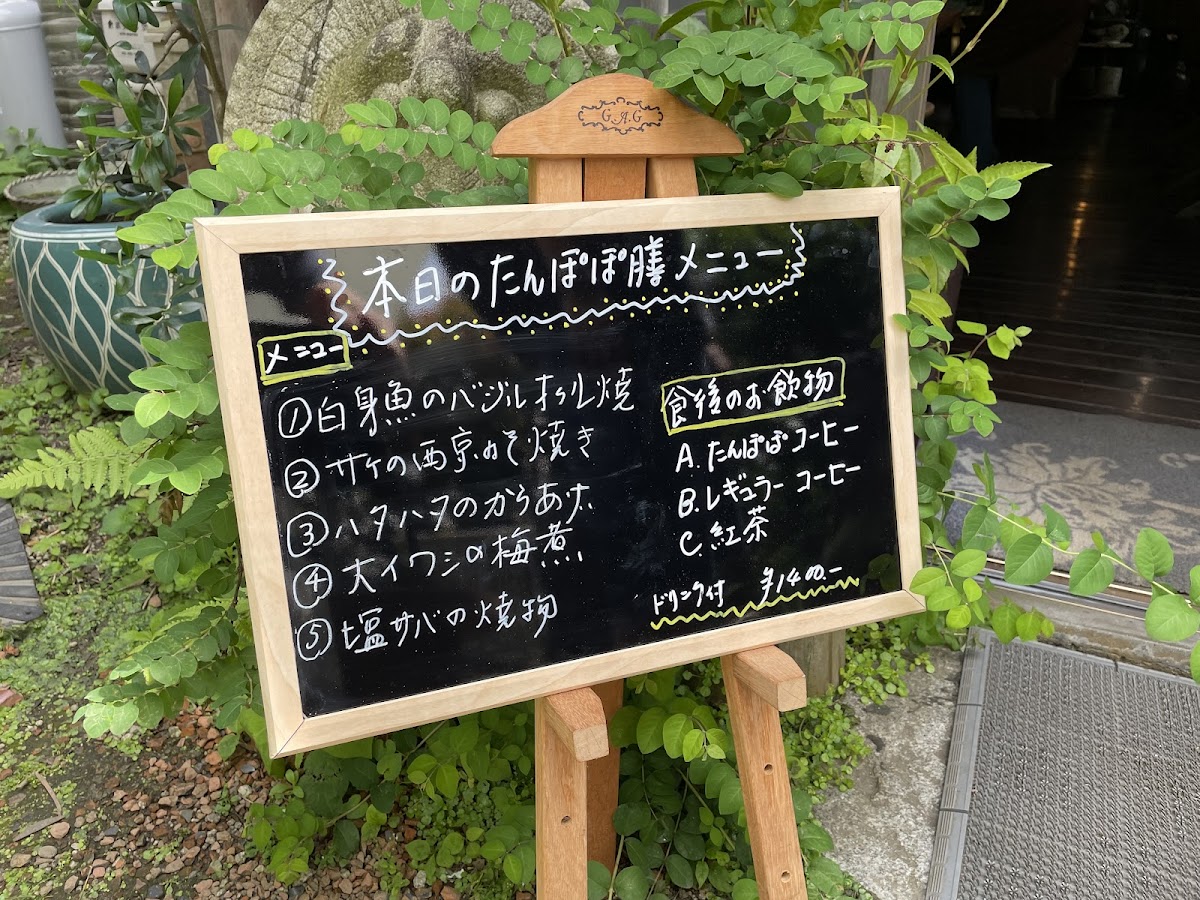 G.A.G
本日のたんぽぽ膳メニュー
メニュー
①白身魚のバジルホイル焼
②サケの西京みそ焼き
③ハタハタのからあげ
④大イワシの梅煮
⑤塩サバの焼物
食後のお飲物
A.たんぽぽコーヒー
B.レギュラーコーヒー
C.紅茶
ドリンク付 ¥1400.-